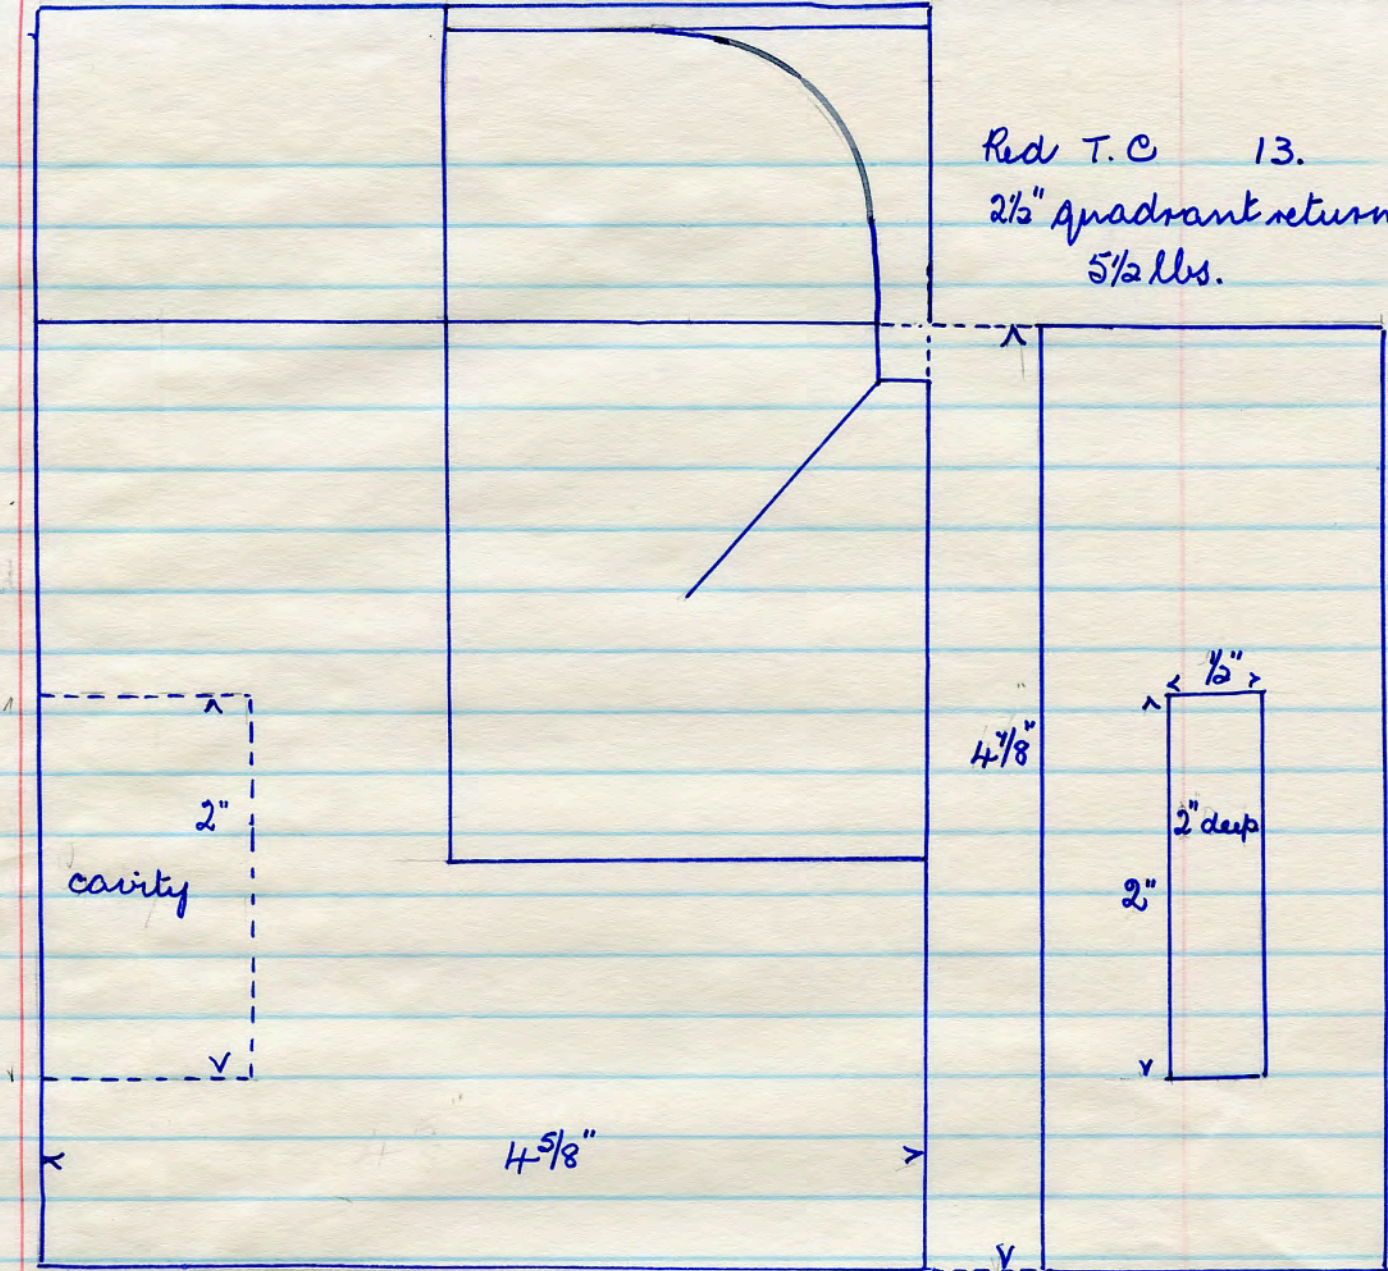 Red T.C 13.
2½" quadrant return
5½ lbs.
½"
4⅞"
2"
2" deep
cavity
2"
4⅝"